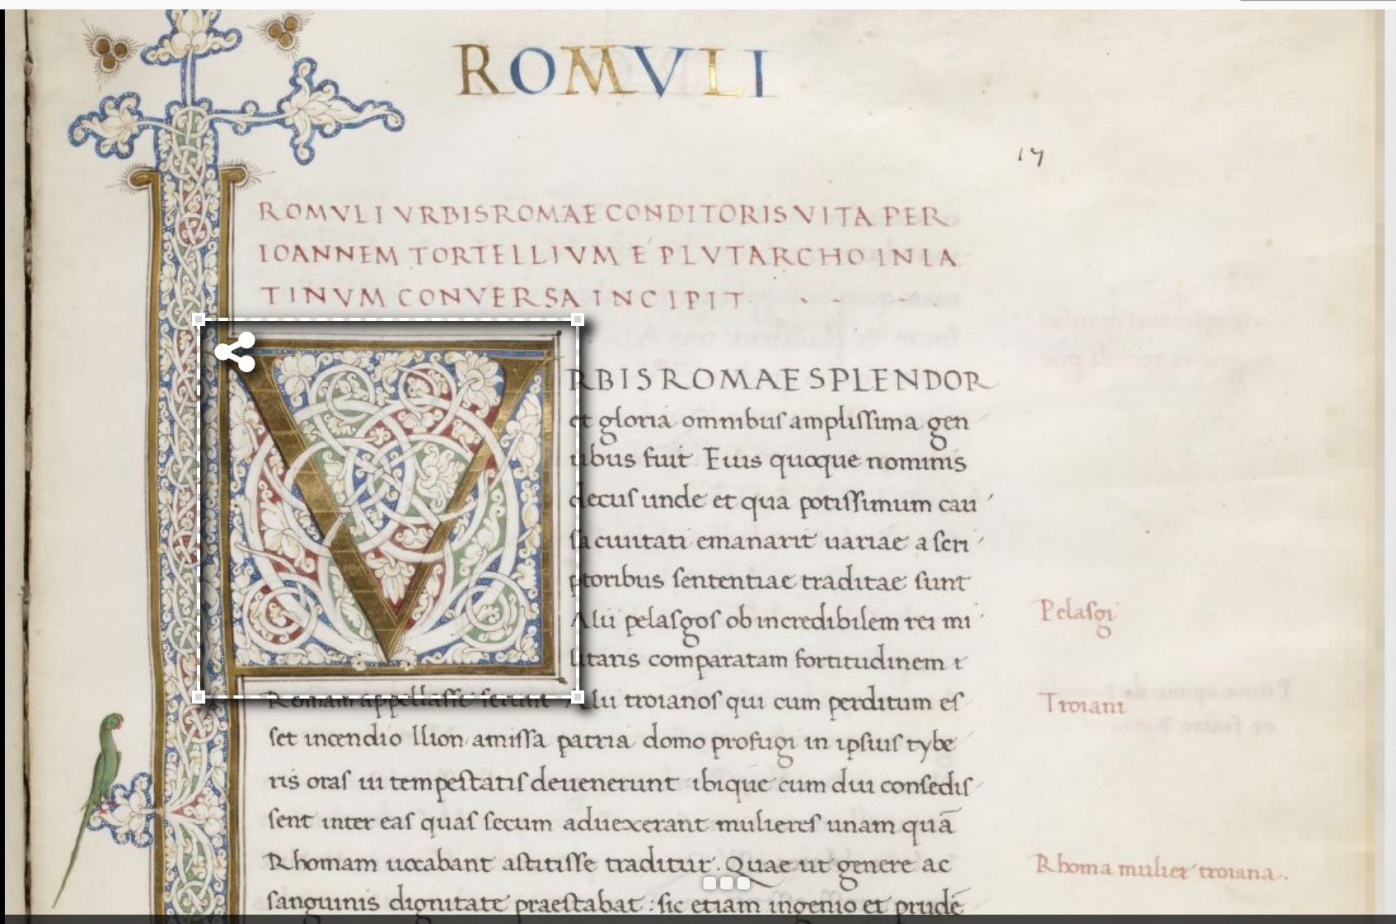 ROMVLI
17
ROMVLI VRBIS ROMAE CONDITORIS VITA PER
IOANNEM TORTELLIVM E PLVTARCHO IN LA
TINVM CONVERSA INCIPIT
V
RBIS ROMAE SPLENDOR
et gloria omnibuſ ampliſſima gen
tibus fuit Eius quoque nominis
decuſ unde et qua potiſſimum cau
ſa ciuitati emanarit uariae a ſcri
ptoribus ſententiae traditae ſunt
Alii pelaſgoſ ob incredibilem rei mi
litaris comparatam fortitudinem
Pelaſgi
Romam appellaſſe ferunt Alii troianoſ qui cum perditum eſ
Troiani
ſet incendio Ilion amiſſa patria domo profugi in ipſiuſ tybe
ris oraſ ui tempeſtatiſ deuenerunt ibique cum diu conſediſ
ſent inter eaſ quaſ ſecum aduexerant muliereſ unam quā
Rhomam uocabant aſtitiſſe traditur. Quae ut genere ac
Rhoma mulier troiana.
ſanguinis dignitate praeſtabat : ſic etiam ingenio et prudē